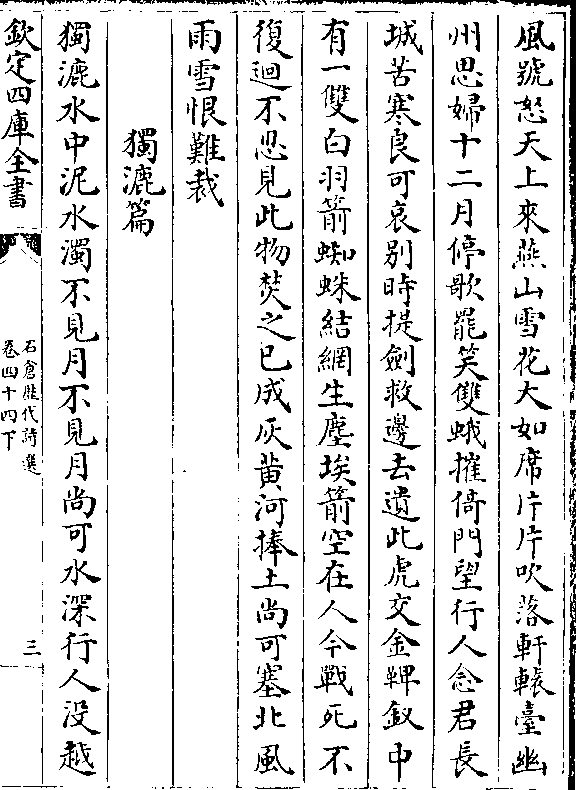 風號怒天上來燕山雪花大如席片片吹落軒轅臺幽
州思婦十二月停歌罷笑雙蛾摧倚門望行人念君長
城苦寒良可哀别時提劍救邊去遺此虎文金鞞釵中
有一雙白羽箭蜘蛛結網生塵埃箭空在人今戰死不
復迴不忍見此物焚之已成灰黄河捧土尚可塞北風
雨雪恨難裁
獨漉篇
獨漉水中泥水濁不見月不見月尚可水深行人没越
欽定四庫全書
石倉歴代詩選
卷四十四下
三